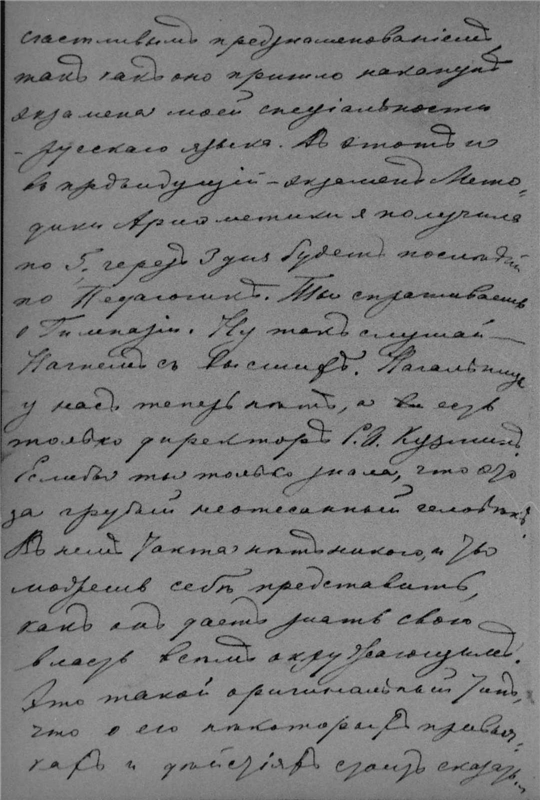 счастливымъ предзнаменованіемъ,
такъ какъ оно пришло наканунѣ
экзамена моей спеціальности
- русскаго языка. Въ этотъ и
въ предыдущій - экзаменъ Мето-
дики Ариѳметики я получила
по 5, черезъ 3 дня будетъ послѣдній
по Педагогикѣ. Ты спрашиваешь
о Гимназіи. Ну такъ слушай —
Начнемъ съ высшихъ. Начальницы
у насъ теперь нѣтъ, а есть
только директоръ Кузминъ.
Еслибы ты только знала, что это
за грубый неотесанный человѣкъ.
Въ немъ такта нѣтъ никакого, и ты
можешь себѣ представить,
какъ онъ даетъ знать свою
власть всѣмъ окружающимъ.
Это такой оригинальный типъ,
что о его нѣкоторыхъ привыч-
кахъ и дѣйствіяхъ стоитъ сказать